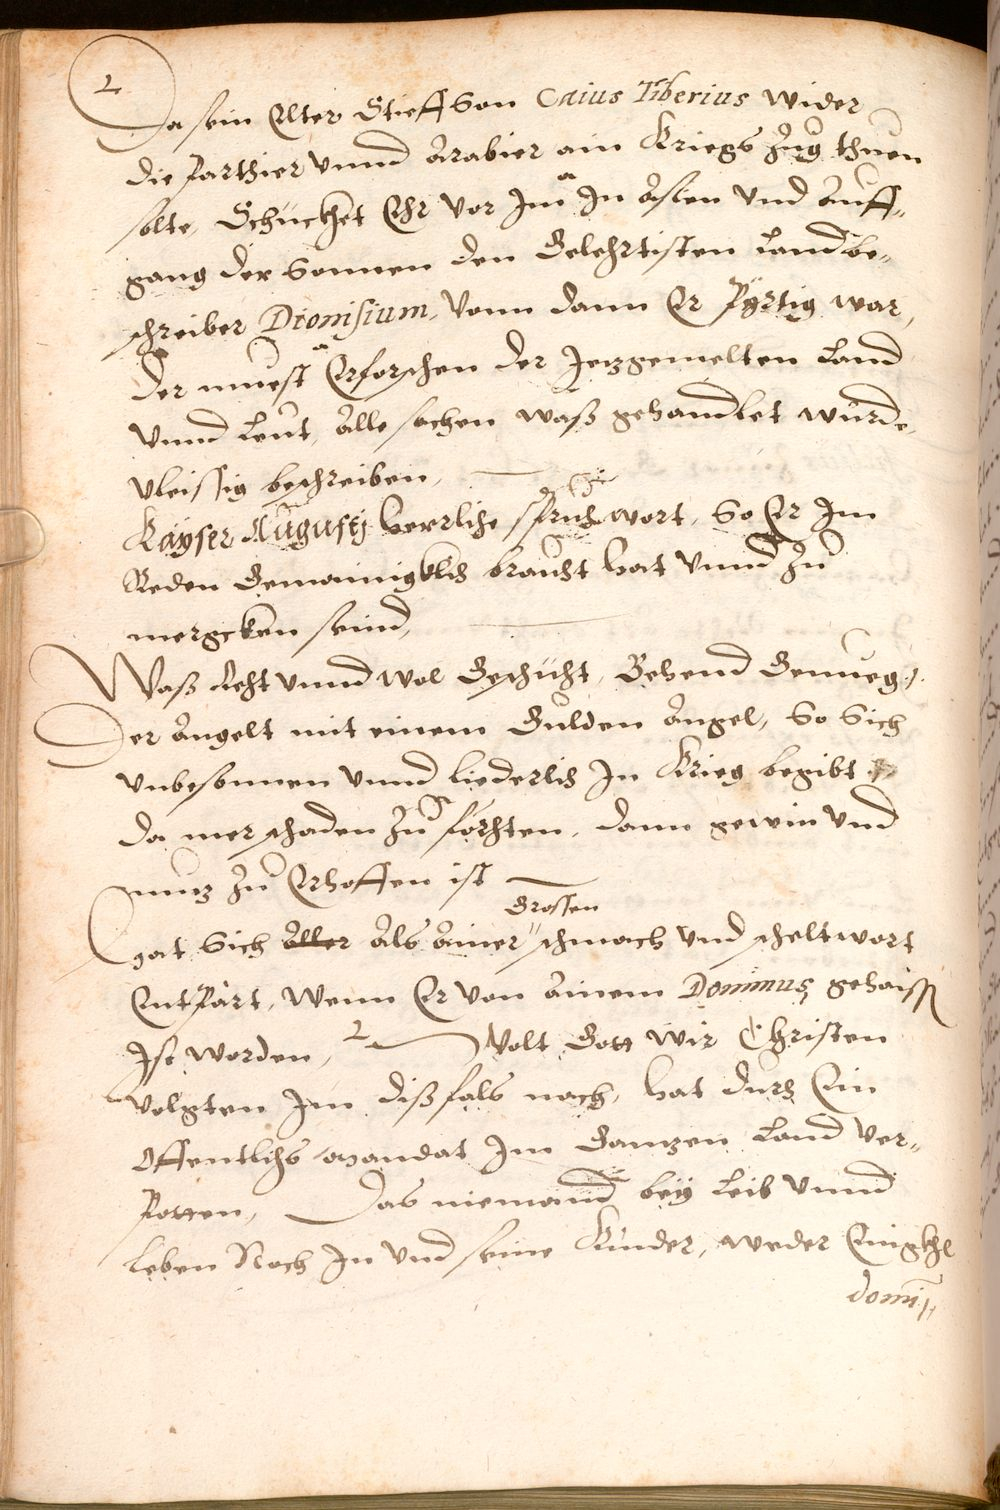 Da sein Elter Stieff Son Caius Tiberius wider
die Parthier vnnd Arabier ain Kriegs Zug thuen
solte, Schückhet Ehr vor Im In Asien vnd Auff„
gang der Sonnen den Gelehrtisten Landbe„
schreiber Dionisium, Vonn dann Er Pürtig war,
Der muest Erforschen der Jezgemelten Land
Vnnd Leut, Alle sachen waß gehandlet wurde,
Vleissig beschreiben,
Kayser Augustj herrliche spruchwort, So Er Im
Reden Gemainigklich braucht hat vnnd Zu
merckhen seind,
Waß Recht vnnd wol Geschücht, Behend Genueg,
Der Angelt mit einem Gulden Angel, So Sich
Vnbesonnen vnnd liederlich In Krieg begibt
da mer schaden Zu förchten, dann gewin vnd
nuz Zu Erhoffen ist
Grossen
Hat Sich Aller Als Ainer schmach vnd scheltwort
Entpärt, Wenn Er Von Ainem Dominus gehaissen
Ist worden, Wolt Gott wir Christen
Volgten Im dißfals nach, hat durch Ein
Offentlichs Mandat Im Ganzen Land Ver„
Potten, Das niemand bey Leib Vnnd
Leben Noch In vnd seine Kinder, weder
domi„